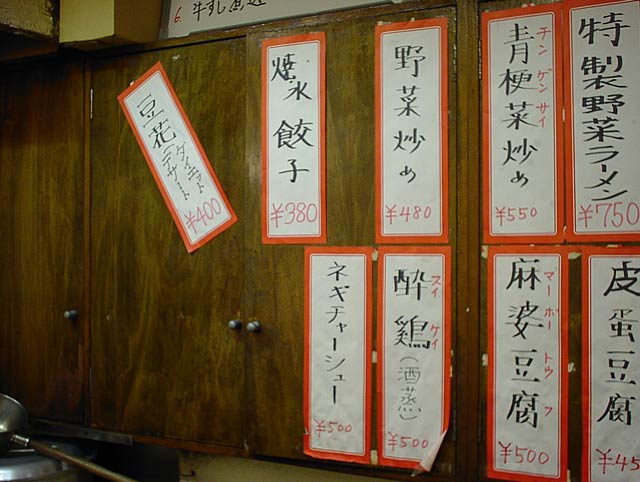 6. 牛すじ煮込
豆花
(ダイエット
デザート)
¥400
焼水餃子
¥380
野菜炒め
¥480
青梗菜炒め
チンゲンサイ
¥550
特製野菜ラーメン
¥750
ネギチャーシュー
¥500
酔鶏(酒蒸)
スイ ケイ
¥500
麻婆豆腐
マーボートウフ
¥500
皮蛋豆腐
¥45